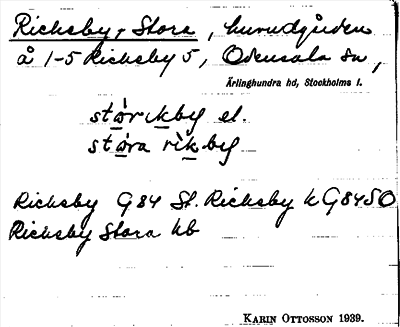 Ricksby, Stora, huvudgården
å 1-5 Ricksby 5, Odensala sn,
Ärlinghundra hd, Stockholms l.
stórikby el.
stóra rìkby
Ricksby G 84 St. Ricksby k G 84 SO
Ricksby Stora hb
KARIN OTTOSSON 1939.